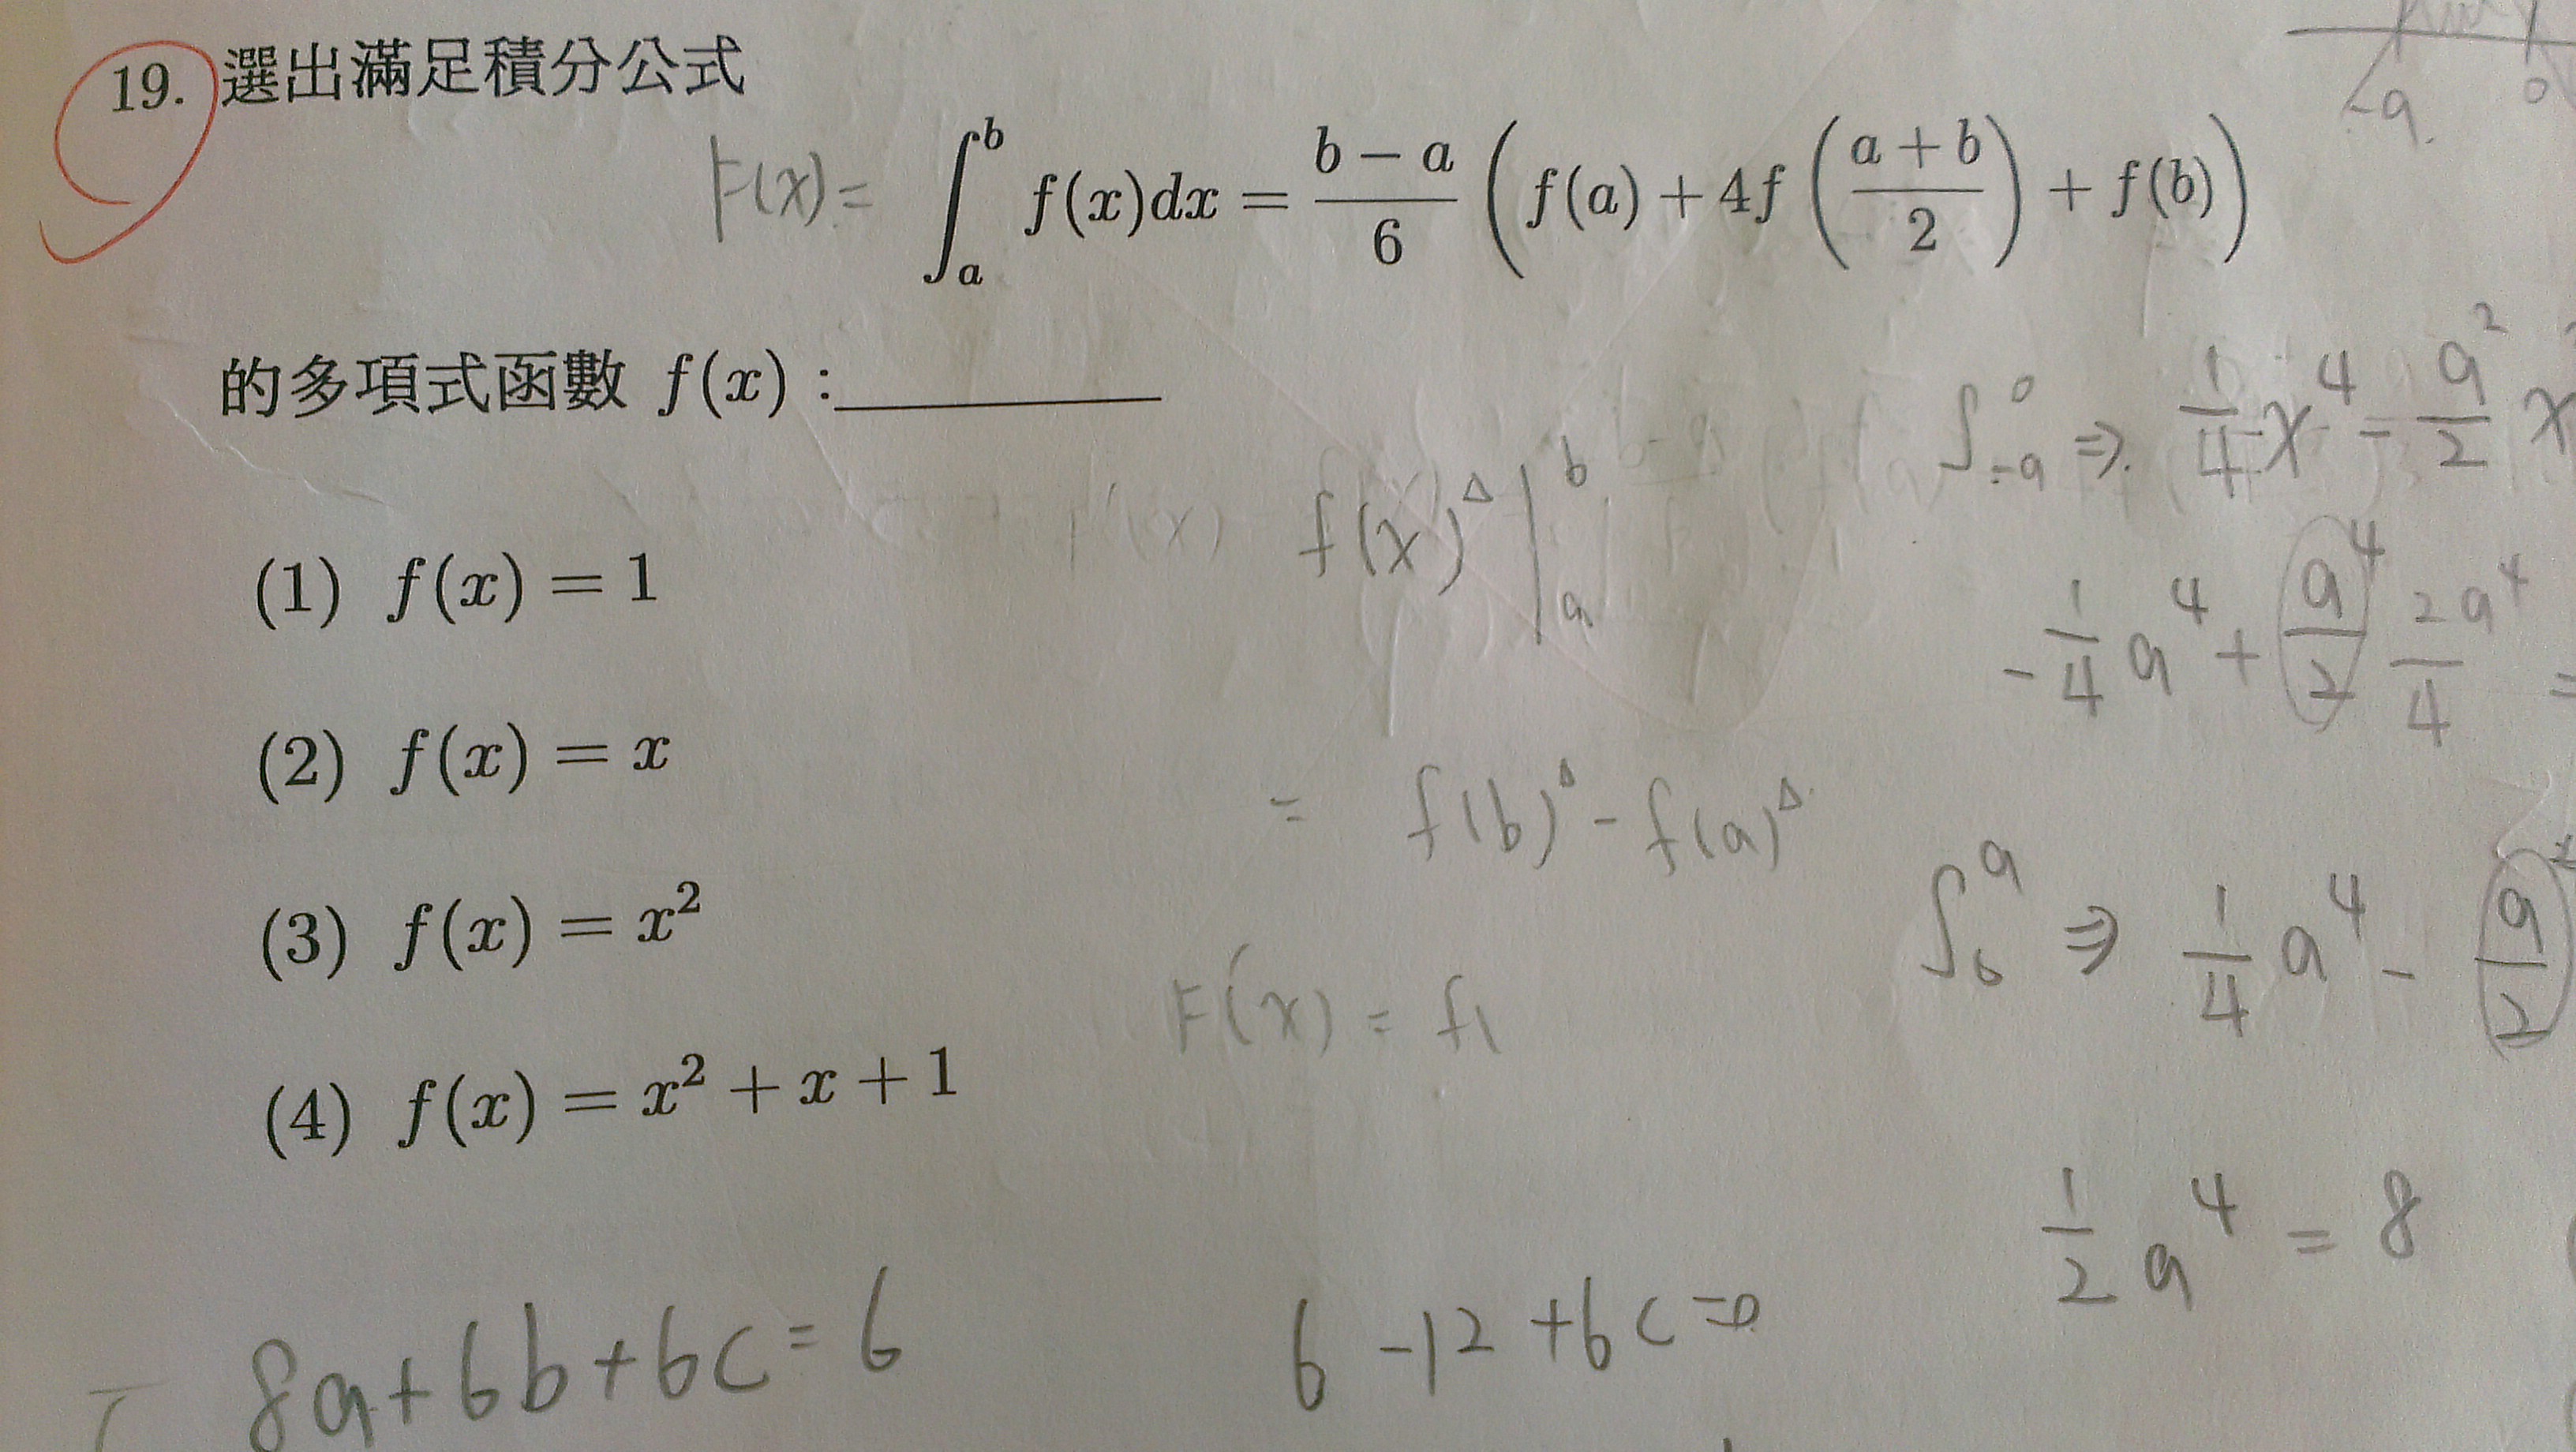 19. 選出滿足積分公式
F(x) = ∫_a^b f(x)dx = \frac{b-a}{6} ( f(a) + 4f ( \frac{a+b}{2} ) + f(b) )
的多項式函數 f(x) :
(1) f(x) = 1
(2) f(x) = x
(3) f(x) = x²
(4) f(x) = x² + x + 1
f(x)^Δ |_a^b
= f(b)^Δ - f(a)^Δ
F'(x) = f
-a 0
∫_{-a}^0 ⇒ \frac{1}{4}x⁴ - \frac{a²}{2} x
-\frac{1}{4}a⁴ + \frac{a⁴}{2} \frac{2a⁴}{4} =
∫_0^a ⇒ \frac{1}{4}a⁴ - \frac{a}{2}
\frac{1}{2}a⁴ = 8
8a+6b+6c=6
6-12+6c=0